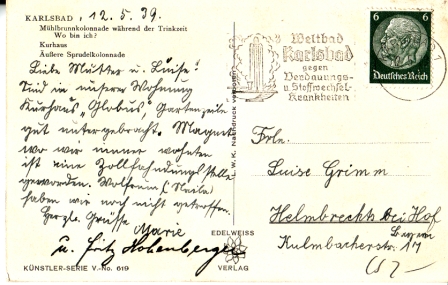 KARLSBAD, 12.5.39.
Mühlbrunnkolonnade während der Trinkzeit
Wo bin ich?
Kurhaus
Äußere Sprudelkolonnade
Liebe Mutter u. Luise!
Sind in unserer Wohnung
Kurhaus „Globus", Gartenzeile
gut untergebracht. Magnet
wo wir immer wohnten
ist eine Zollfahndungsstelle
geworden. Wolfrum
haben wir noch nicht getroffen.
Herzl. Grüsse
Marie
u. Fritz Hohenberger
KÜNSTLER-SERIE V.-No. 619
EDELWEISS
VERLAG
L. W. K. Nachdruck verboten
Weltbad
Karlsbad
gegen
Verdauungs-
u Stoffwechsel-
Krankheiten
6 6
Deutsches Reich
Frln.
Luise Grimm
Helmbrechts bei Hof
Bayern
Kulmbacherstr. 17